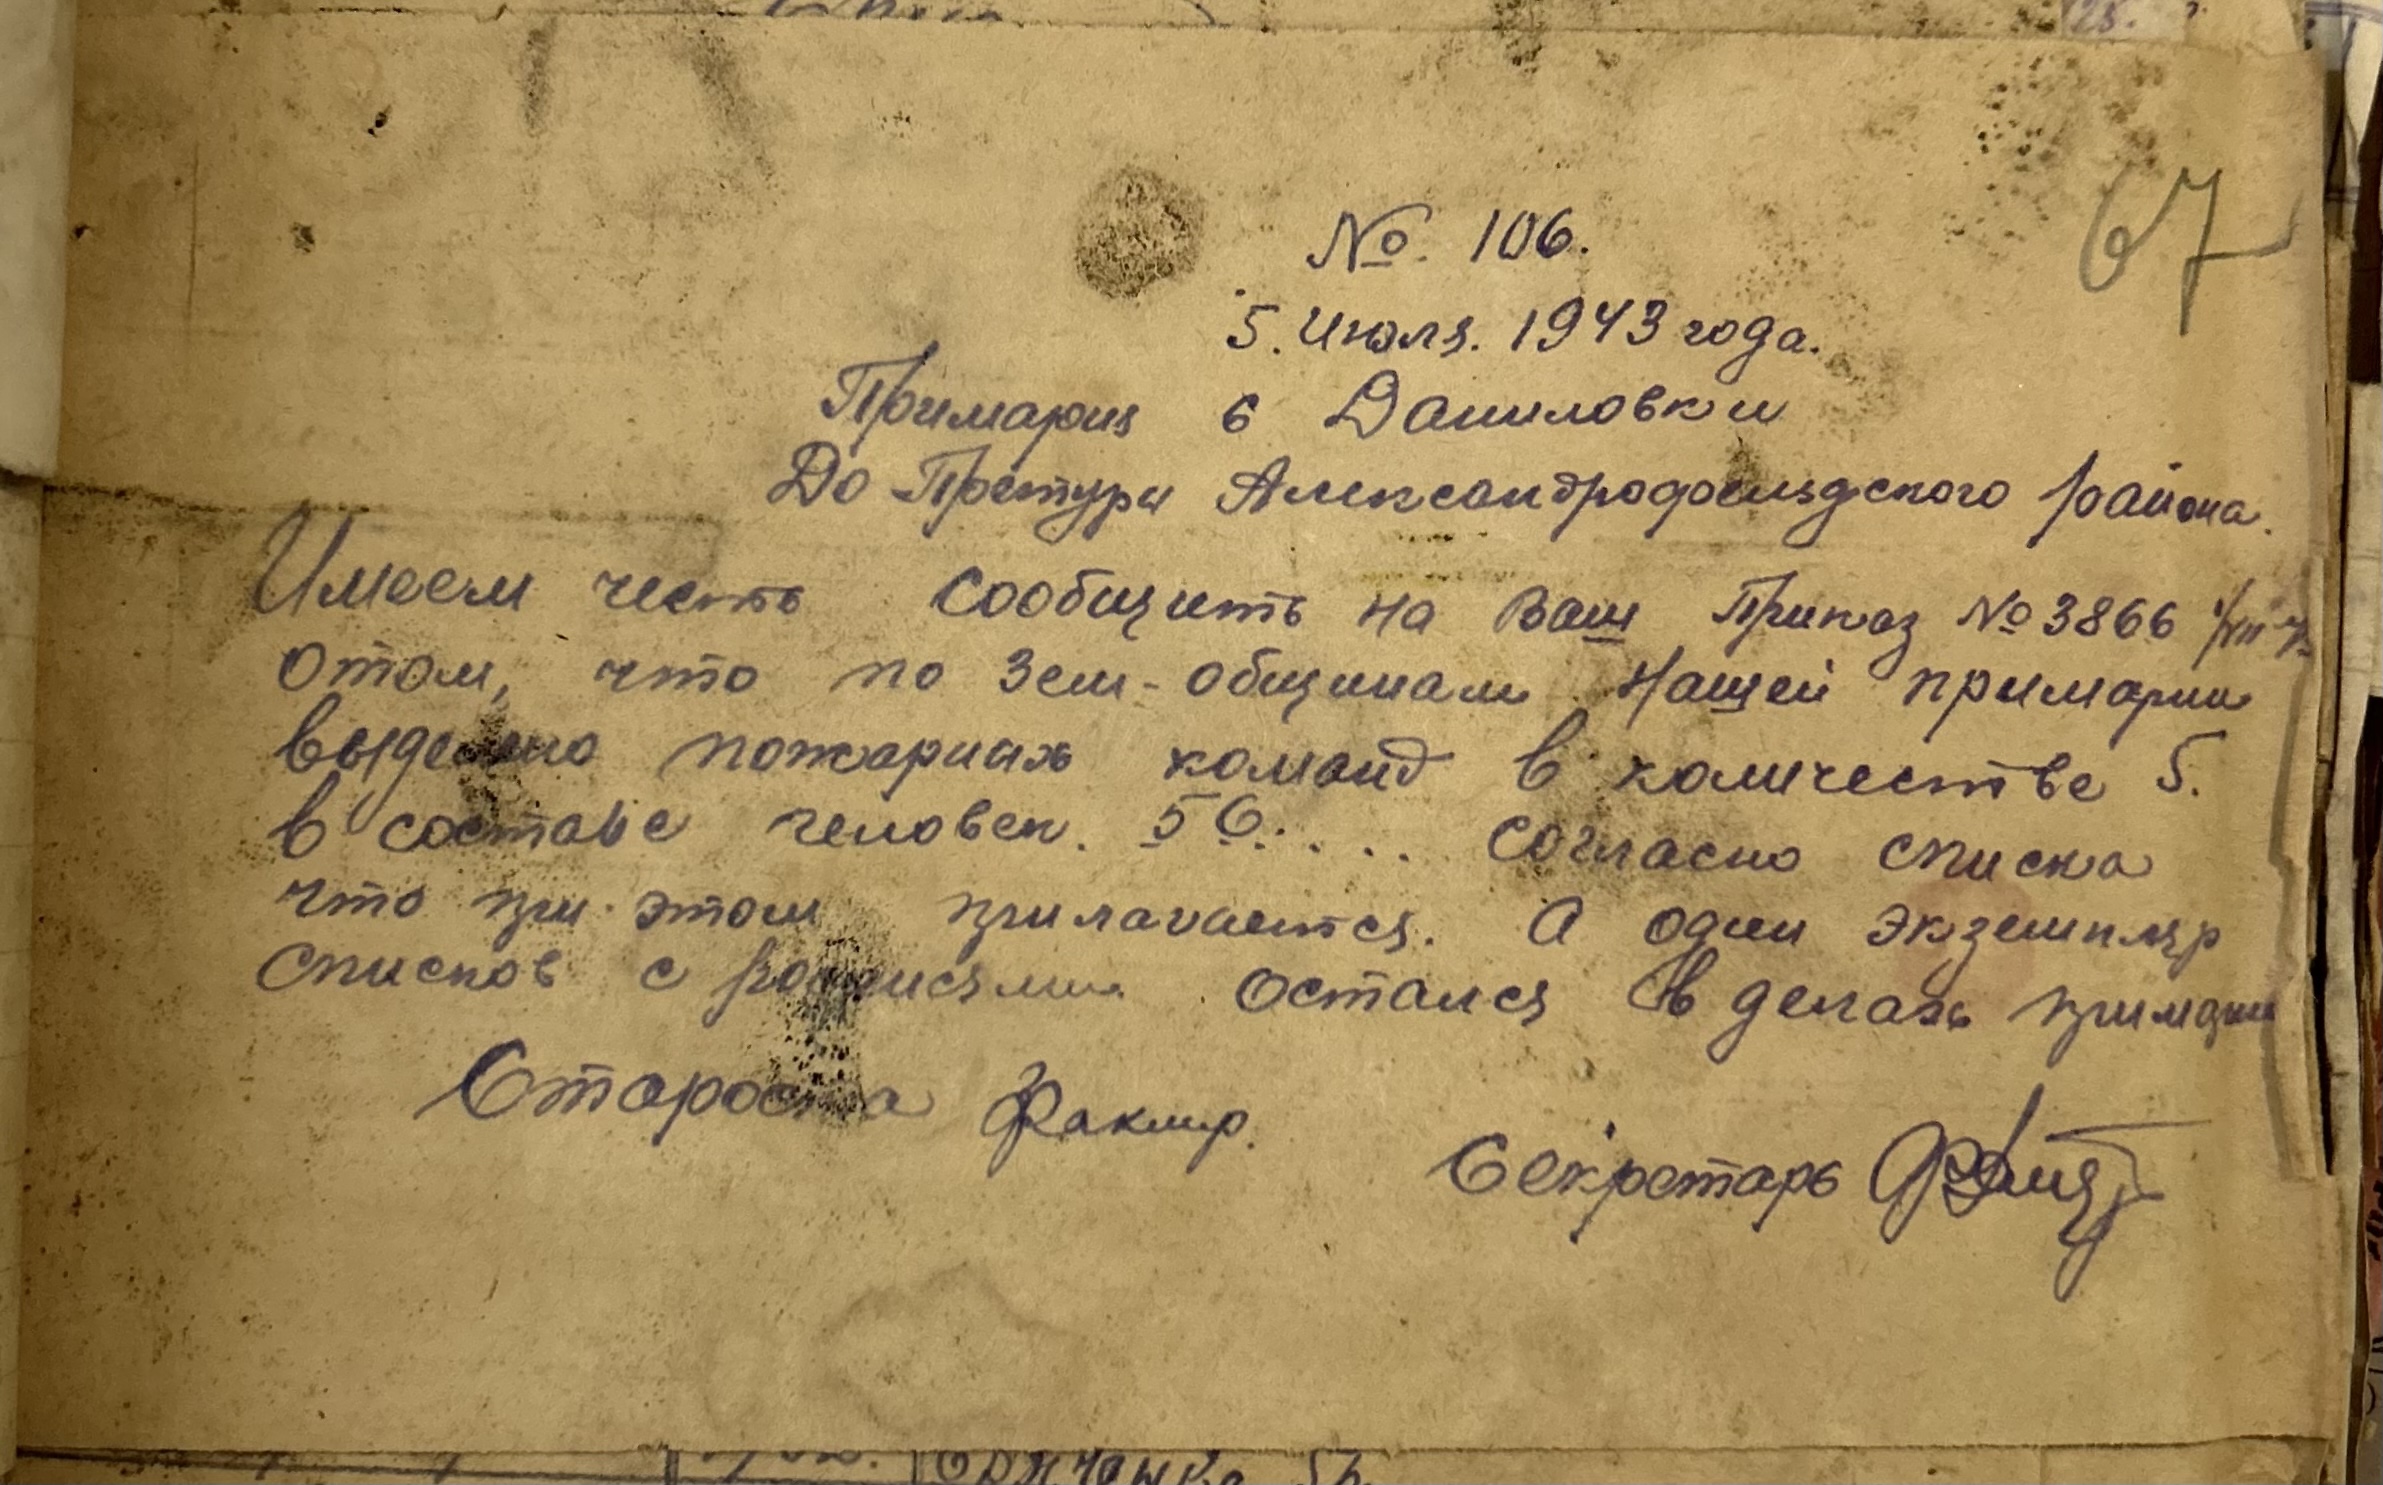 67
№. 106.
5. Июля. 1943 года.
Примария с Даниловки
До Претуры Александрофельдского района.
Имеем честь сообщить на Ваш Приказ № 3866
отом, что по Зем-общинам Нашей примарии
выделено пожарных команд в количестве 5.
в составе человек. 56. . . . согласно списка
что при этом прилагается. А один экземпляр
списков с росписями остался в делах примарии
Староста Факир.
Секретарь